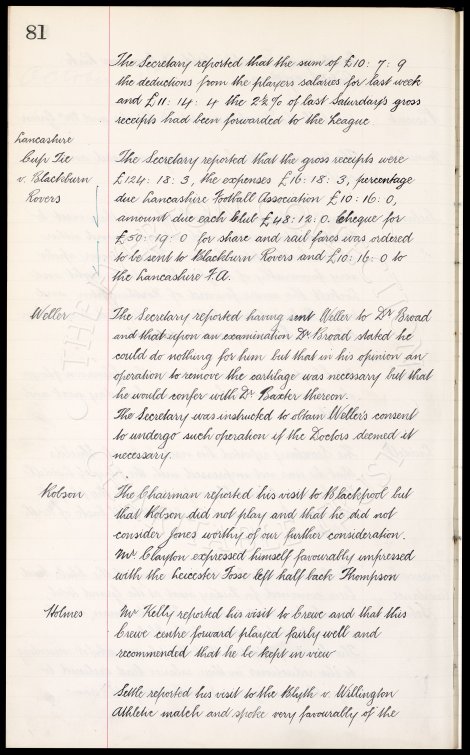 81
The Secretary reported that the sum of £10: 7: 9
the deductions from the players salaries for last week
and £11: 14: 4 the 2½% of last Saturday's gross
receipts had been forwarded to the League
Lancashire
Cup Tie
v. Blackburn
Rovers
The Secretary reported that the gross receipts were
£124: 18: 3, the expenses £16: 18: 3, percentage
due Lancashire Football Association £10: 16: 0,
amount due each Club £48: 12: 0. Cheque for
£50: 19: 0 for share and rail fares was ordered
to be sent to Blackburn Rovers and £10: 16: 0 to
the Lancashire F.A.
Weller
The Secretary reported having sent Weller to Dr Broad
and that upon an examination Dr Broad stated he
could do nothing for him but that in his opinion an
operation to remove the cartilage was necessary but that
he would confer with Dr Baxter thereon.
The Secretary was instructed to obtain Weller's consent
to undergo such operation if the Doctors deemed it
necessary.
Robson
The Chairman reported his visit to Blackpool but
that Robson did not play and that he did not
consider Jones worthy of our further consideration.
Mr Clayton expressed himself favourably impressed
with the Leicester Fosse left half back Thompson
Holmes
Mr Kelly reported his visit to Crewe and that this
Crewe centre forward played fairly well and
recommended that he be kept in view
Settle reported his visit to the Blyth v. Willington
Athletic match and spoke very favourably of the